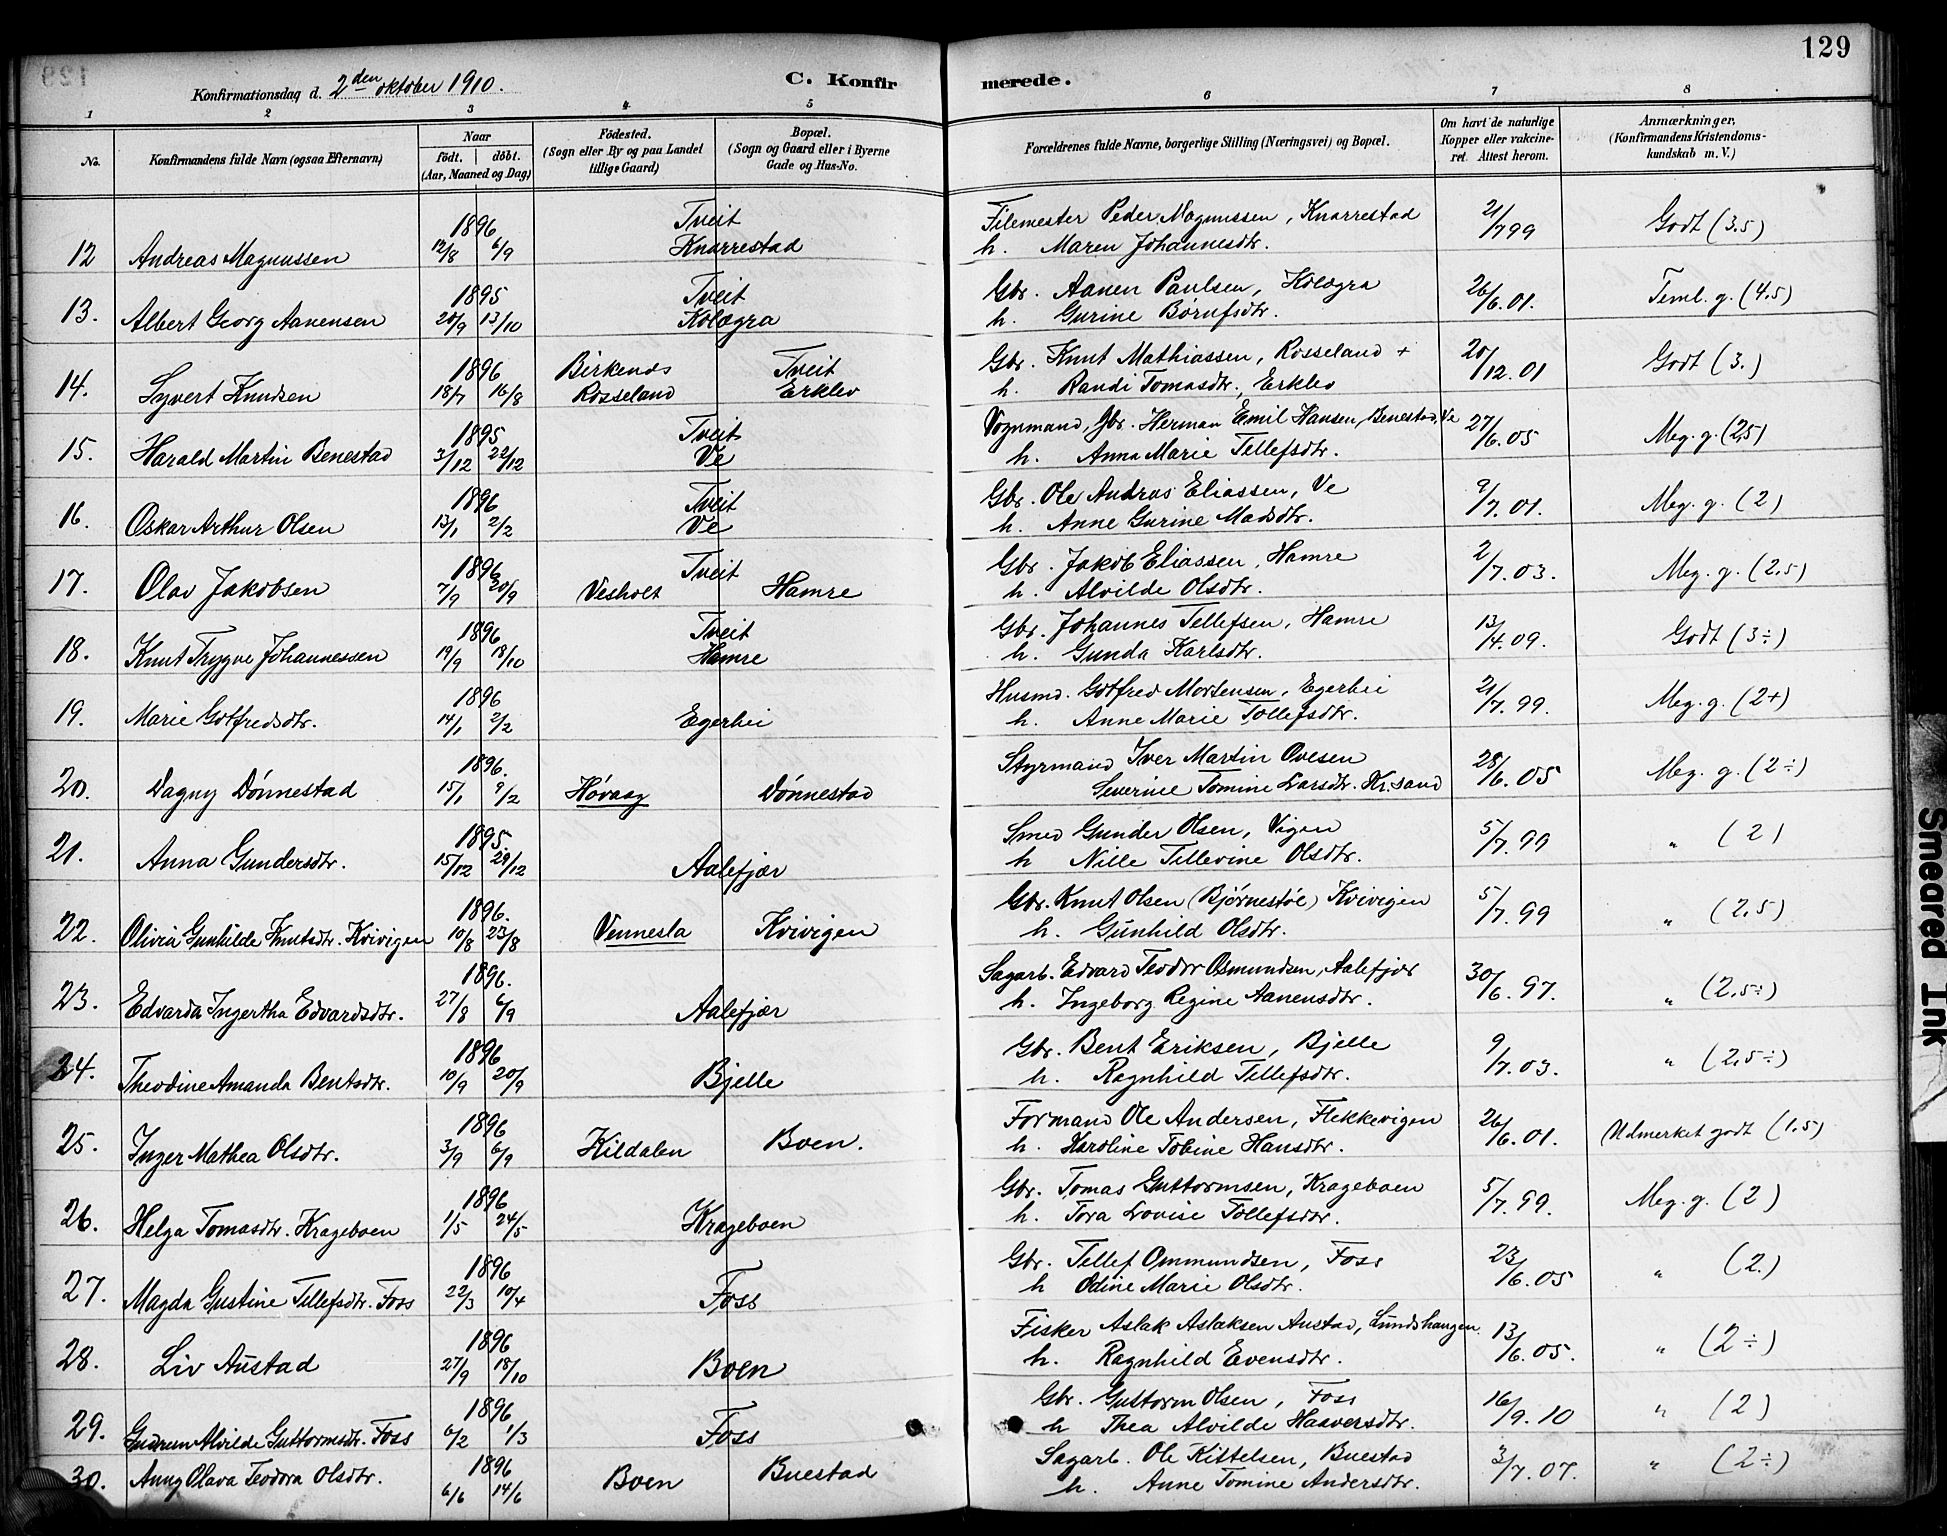 129
Konfirmationsdag d. 2den oktober 1910.
C. Konfirmerede.
1 2 3 4 5 6 7 8
No.
Konfirmandens fulde Navn (ogsaa Efternavn)
Naar
födt. döbt.
(Aar, Maaned og Dag)
Födested.
(Sogn eller By og paa Landet
tillige Gaard)
Bopæl.
(Sogn og Gaard eller i Byerne
Gade og Hus-No.
Forældrenes fulde Navne, borgerlige Stilling (Næringsvei) og Bopæl.
Om havt de naturlige
Kopper eller vakcine-
ret. Attest herom.
Anmærkninger,
(Konfirmandens Kristendoms-
kundskab m. V.)
1896 Tveit Filemester Peder Magnussen, Knarrestad 21/7 99 Godt (3.5)
12 Andreas Magnussen 12/8 6/9 Knarrestad h. Maren Johannesdtr.
1895 Tveit Gbr. Aanen Paulsen, Kologra 26/6.01. Teml. g. (4,5)
13. Albert Georg Aanensen 20/9 13/10 Kologra h. Gurine Børufsdtr.
1896 Birkenes Tveit Gbr. Knut Mathiassen, Rosseland + 20/12.01 Godt (3.)
14. Syvert Knudsen 18/7 16/8 Rosseland Erklev h. Randi Tomasdtr., Erklev
1895 Tveit Vognmand, Gbr. Herman Emil Hansen, Benestad, Ve 27/6.05 Meg. g. (2,5)
15. Harald Martin Benestad 3/12 22/12 Ve h. Anna Marie Tellefsdtr.
1896 Tveit Gbr. Ole Andras Eliassen, Ve 9/7.01. Meg. g. (2)
16. Oskar Arthur Olsen 13/1 2/2 Ve h. Anne Gurine Madsdtr.
1896 Tveit Gbr. Jakob Eliassen, Hamre 2/7.03. Meg. g. (2,5)
17. Olav Jakobsen 7/9 20/9 Vesholt Hamre h. Alvilde Olsdtr.
1896 Tveit Gbr. Johannes Tellefsen, Hamre 13/4.09. Godt (3÷)
18. Knut Trygve Johannessen 19/9 18/10 Hamre h. Gunda Karlsdtr.
1896 Husmd. Gotfred Mortensen, Egerhei 21/7.99. Meg. g. (2+)
19. Marie Gotfredsdtr. 14/1 2/2 Egerhei h. Anne Marie Tollefsdtr.
1896. Styrmand Iver Martin Ovesen 28/6.05 Meg. g. (2÷)
20. Dagny Dönnestad 15/1 9/2 Høvaag Dönnestad Severine Tomine Larsdtr. Kr.sand
1895. Smed Gunder Olsen, Vigen 5/7.99 " (2)
21. Anna Gundersdtr. 15/12 29/12 Aalefjær h Nille Tellevine Olsdtr.
1896. Gbr. Knut Olsen (Bjørnestøl) Kvivigen 5/7.99 " (2,5)
22. Olivia Gunhilde Knutsdtr. Kvivigen 10/8 23/8 Vennesla Kvivigen h. Gunhild Olsdtr.
1896. Sagarb. Edvard Teodor Osmundsen, Aalefjær 30/6.97. " (2,5÷)
23. Edvarda Ingertha Edvardsdtr. 27/8 6/9 Aalefjær h. Ingeborg Regine Aanensdtr.
1896 Gbr. Bent Eriksen, Bjelle 9/7.03. " (2,5÷)
24. Theodine Amanda Bentsdtr. 10/9 20/9 Bjelle h. Ragnhild Tellefsdtr.
1896 Formand Ole Andersen, Flekkevigen 26/6.01. Udmerket godt (1,5)
25. Inger Mathea Olsdtr. 3/9 6/9 Kildalen Boen. h. Karoline Tobine Hansdtr.
1896 Gbr. Tomas Guttormsen, Krageboen 5/7.99. Meg. g. (2)
26. Helga Tomasdtr. Krageboen 1/5 24/5 Krageboen h. Tora Lovise Tollefsdtr.
1896 Gbr. Tellef Ommundsen, Foss 23/6.05 " (2.)
27. Magda Gustine Tellefsdtr. Foss 22/3 10/4 Foss h Odine Marie Olsdtr.
1896 Fisker Aslak Aslaksen Austad, Lundshaugen. 13/6.05. " (2÷)
28. Liv Austad 27/9 18/10 Boen h. Ragnhild Evensdtr.
1896 Gbr. Guttorm Olsen, Foss 16/9.10 " (2)
29. Gudrun Alvilde Guttormsdtr. Foss 6/2 1/3 Foss h Thea Alvilde Haaversdtr.
1896 Sagarb. Ole Kittelsen, Buestad 3/7.07. " (2÷)
30. Anny Olava Teodora Olsdtr. 6/6 14/6 Boen Buestad h. Anne Tomine Andersdtr.
Smeared Ink